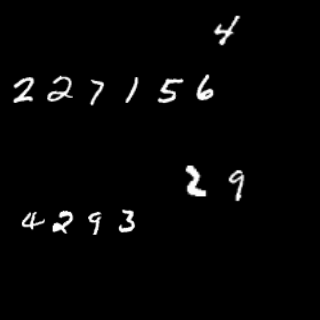 4
227156
29
4293